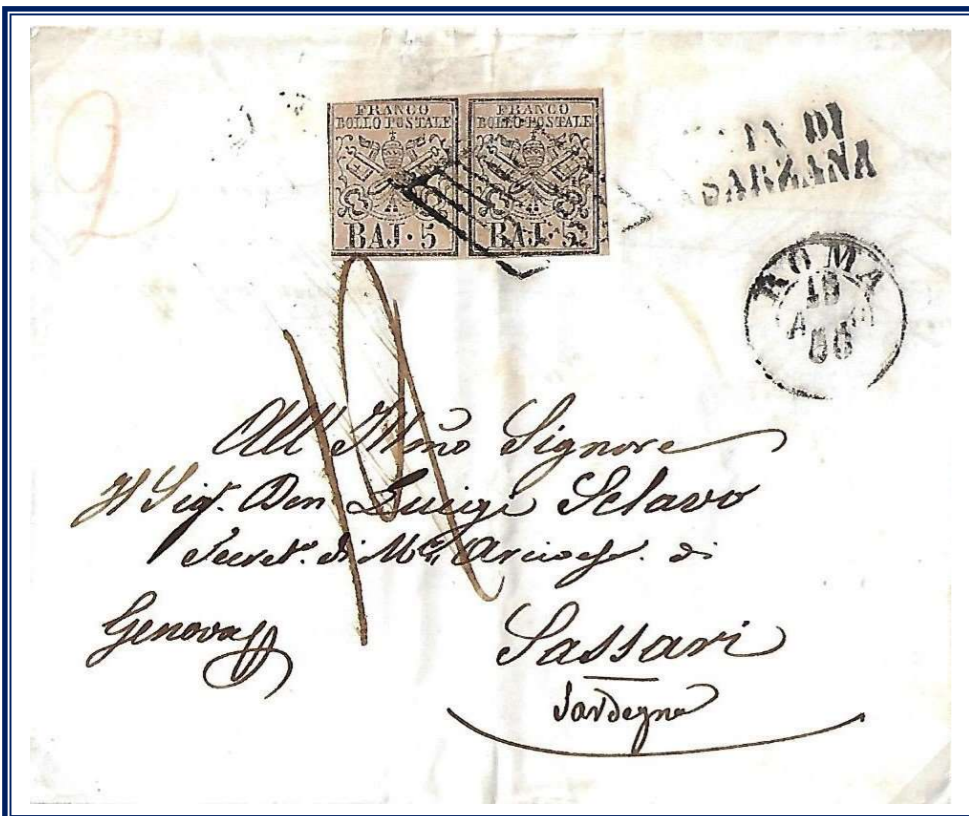 2
FRANCO
BOLLO POSTALE
BAJ·5
FRANCO
BOLLO POSTALE
BAJ·5
DI
SARZANA
ROMA
All' Illmo Signore
Il Sigr. Don Luigi Sclavo
Secreto. di Arcivesc. di
Genova
Sassari
Sardegna